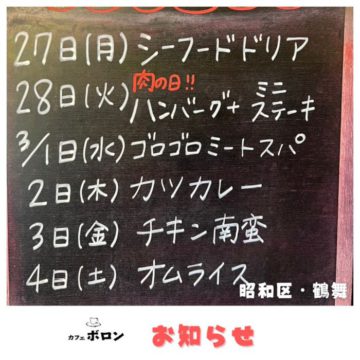 27日(月)シーフードドリア
肉の日!!
28日(火)ハンバーグ+ミニステーキ
3/1日(水)ゴロゴロミートスパ
2日(木)カツカレー
3日(金)チキン南蛮
4日(土)オムライス
昭和区・鶴舞
カフェ ボロン お知らせ